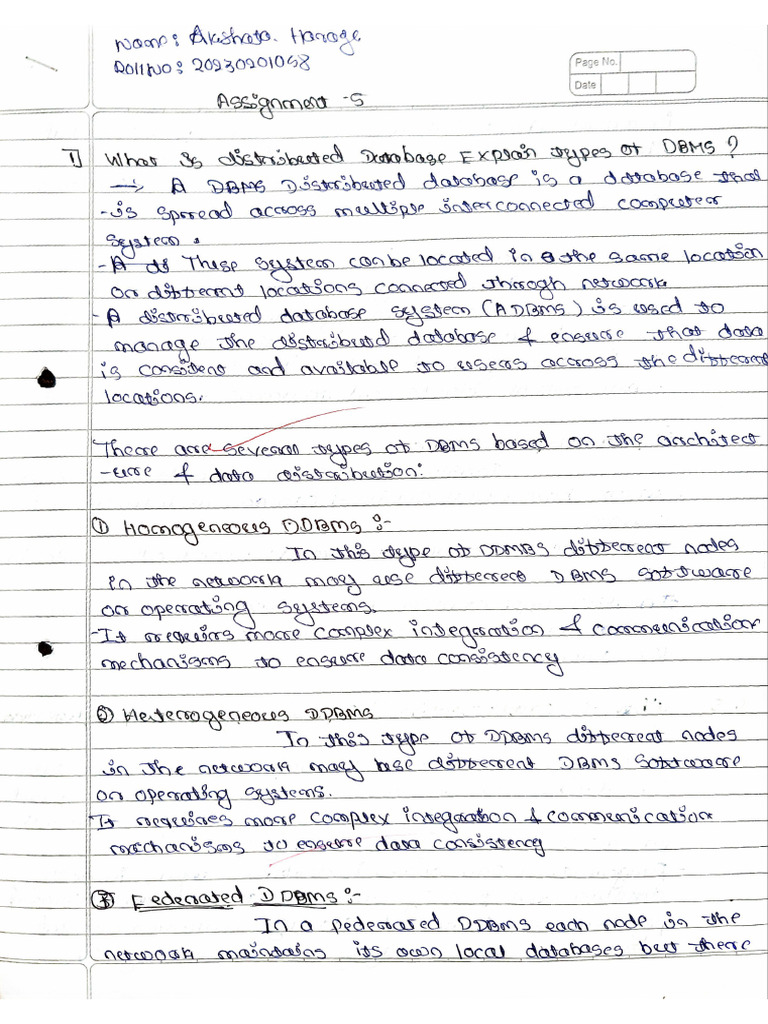 Name: Akshata. Harage
Roll No: 20230201058
Page No.
Date
Assignment -5
1) What is distributed Database Explain types of DBMS?
→ A DBMS Distributed database is a database that
-is spread across multiple interconnected computer
system.
- A ds These system can be located in the same location
or different locations connected through network.
- A distributed database system (ADBMS) is used to
manage the distributed database & ensure that data
is consistent and available to users across the different
locations.
There are several types of DBMS based on the architect
-ure & data distribution:
① Homogeneous DDBMS :-
In this type of DDMBS different nodes
in the network may use different DBMS software
or operating systems.
- It requirs more complex integration & communication
mechanisms to ensure data consistency
② Heterogeneous DDBMS
In this type of DDBMS different nodes
in the network may use different DBMS software
or operating systems.
It requires more complex integration & communication
mechanisms to ensure data consistency
③ Federated DDBMS :-
In a federated DDBMS each node in the
network maintains its own local databases but there